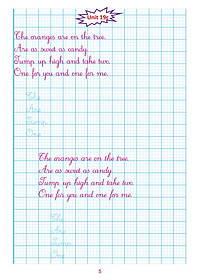 Unit 19c
The oranges are on the tree.
Are as sweet as candy.
Jump up high and take two.
One for you and one for me.
The
Are
Jump
One
The oranges are on the tree.
Are as sweet as candy.
Jump up high and take two.
One for you and one for me.
The
Are
Jump
One
5